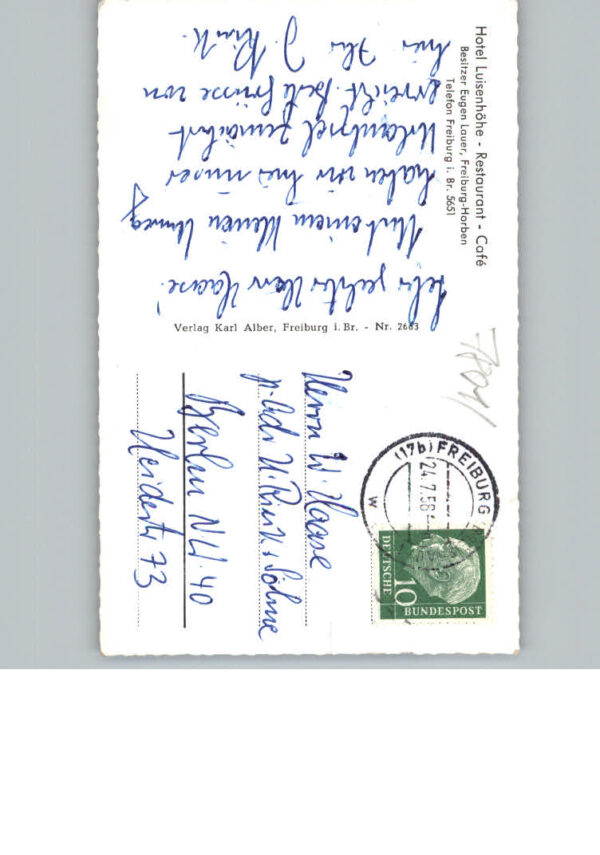 Hotel Luisenhöhe - Restaurant - Café
Besitzer Eugen Lauer, Freiburg-Horben
Telefon Freiburg i. Br. 5651
Sehr geehrter Herr Haase!
Mit einem kleinen Umweg
haben wir hier unser
Urlaubsziel
erreicht. Beste Grüsse von
hier Ihr J. Rink.
Verlag Karl Alber, Freiburg i. Br. - Nr. 2663
7801
(17b) FREIBURG
24.7.58
w
DEUTSCHE
10
BUNDESPOST
Herrn W. Haase
Söhne
Berlin NW. 40
Heidestr 73